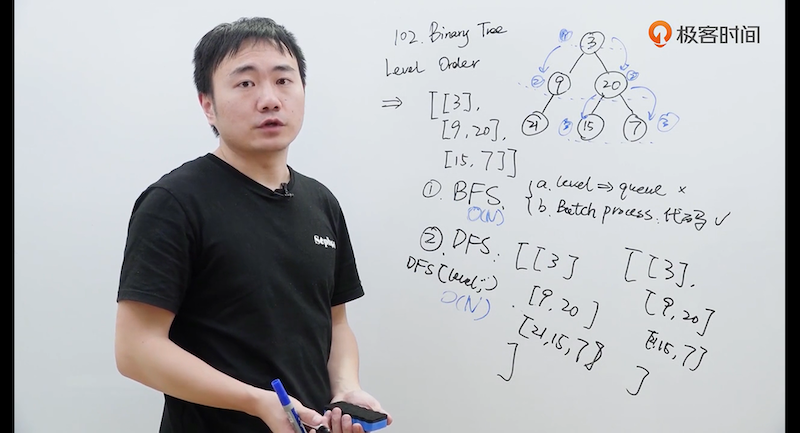 极客时间
102. Binary Tree
Level Order
⇒ [[3],
[9,20],
[15,7]]
3
9 20
21 15 7
① BFS.
O(N)
a. level ⇒ queue ×
b. Batch process. 代码 ✓
② DFS:
DFS(level,)
O(N)
[[3]
[9,20]
[21,15,7]
]
[[3],
[9,20]
15,7]
]